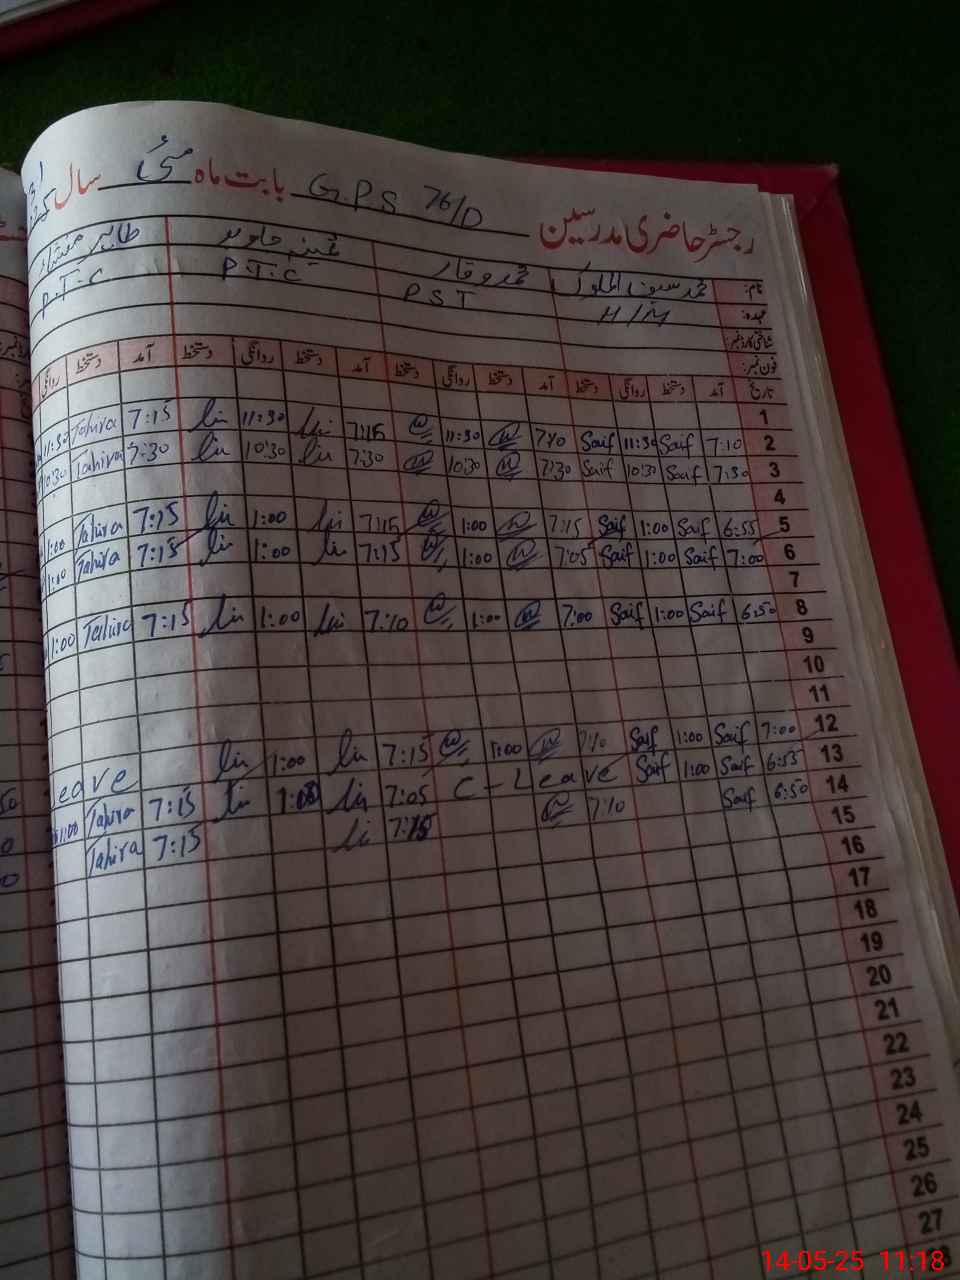 رجسٹر حاضری مدرسین G.P.S 76/D بابت ماہ مئی سال
نام: محمد سیف الملوک محمد وقار
عہدہ: H/M PST P.T.C P.T.C
شناختی کارڈ نمبر:
فون نمبر:
تاریخ آمد دستخط روانگی دستخط آمد دستخط روانگی دستخط آمد دستخط روانگی دستخط آمد دستخط روانگی
1
2 7:10 Saif 11:30 Saif 7:10 11:30 7:15 11:30 7:15 Tahira 11:30
3 7:30 Saif 10:30 Saif 7:30 10:30 7:30 10:30 7:30 Tahira 10:30
4
5 6:55 Saif 1:00 Saif 7:15 1:00 7:15 1:00 7:15 Tahira 1:00
6 7:00 Saif 1:00 Saif 7:05 1:00 7:15 1:00 7:15 Tahira 1:00
7
8 6:50 Saif 1:00 Saif 7:00 1:00 7:10 1:00 7:15 Tahira 1:00
9
10
11
12 7:00 Saif 1:00 Saif 7:10 1:00 7:15 1:00 eave
13 6:55 Saif 1:00 Saif C-Leave 7:05 1:00 7:15 Tahira 1:00
14 6:50 Saif 7:10 7:15 7:15 Tahira
15
16
17
18
19
20
21
22
23
24
25
26
27
14-05-25 11:18